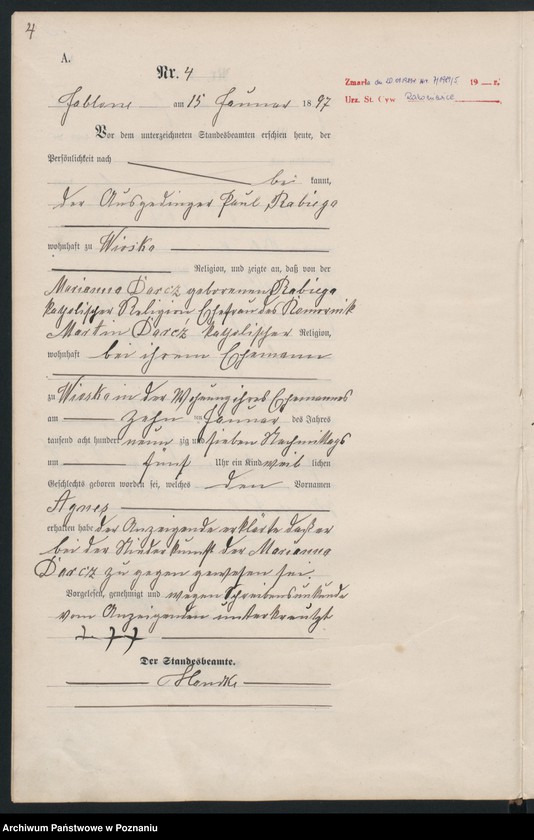 4
A.
Nr. 4
Zmarła 19 r.
Urz. St. Cyw Rakoniewice
Jablone am 15 Januar 1897
Vor dem unterzeichneten Standesbeamten erschien heute, der
Persönlichkeit nach
be kannt,
der Ausgedinger Paul Rabiega
wohnhaft zu Wioska
Religion, und zeigte an, daß von der
Marianna Darcz geborenen Rabiega
katholischer Religion Ehefrau des Komornik
Martin Darcz katholischer Religion,
wohnhaft bei ihrem Ehemann
zu Wioska in der Wohnung ihres Ehemannes
am zehn ten Januar des Jahres
tausend acht hundert neun zig und sieben Nachmittags
um fünf Uhr ein Kind weib lichen
Geschlechts geboren worden sei, welches den Vornamen
Agnes
erhalten habe der Anzeigende erklärte daß er
bei der Niederkunft der Marianna
Darcz zu gegen gewesen sei.
Vorgelesen, genehmigt und wegen Schreibensunkunde
vom Anzeigenden unterkreuzt
Der Standesbeamte.
Archiwum Państwowe w Poznaniu